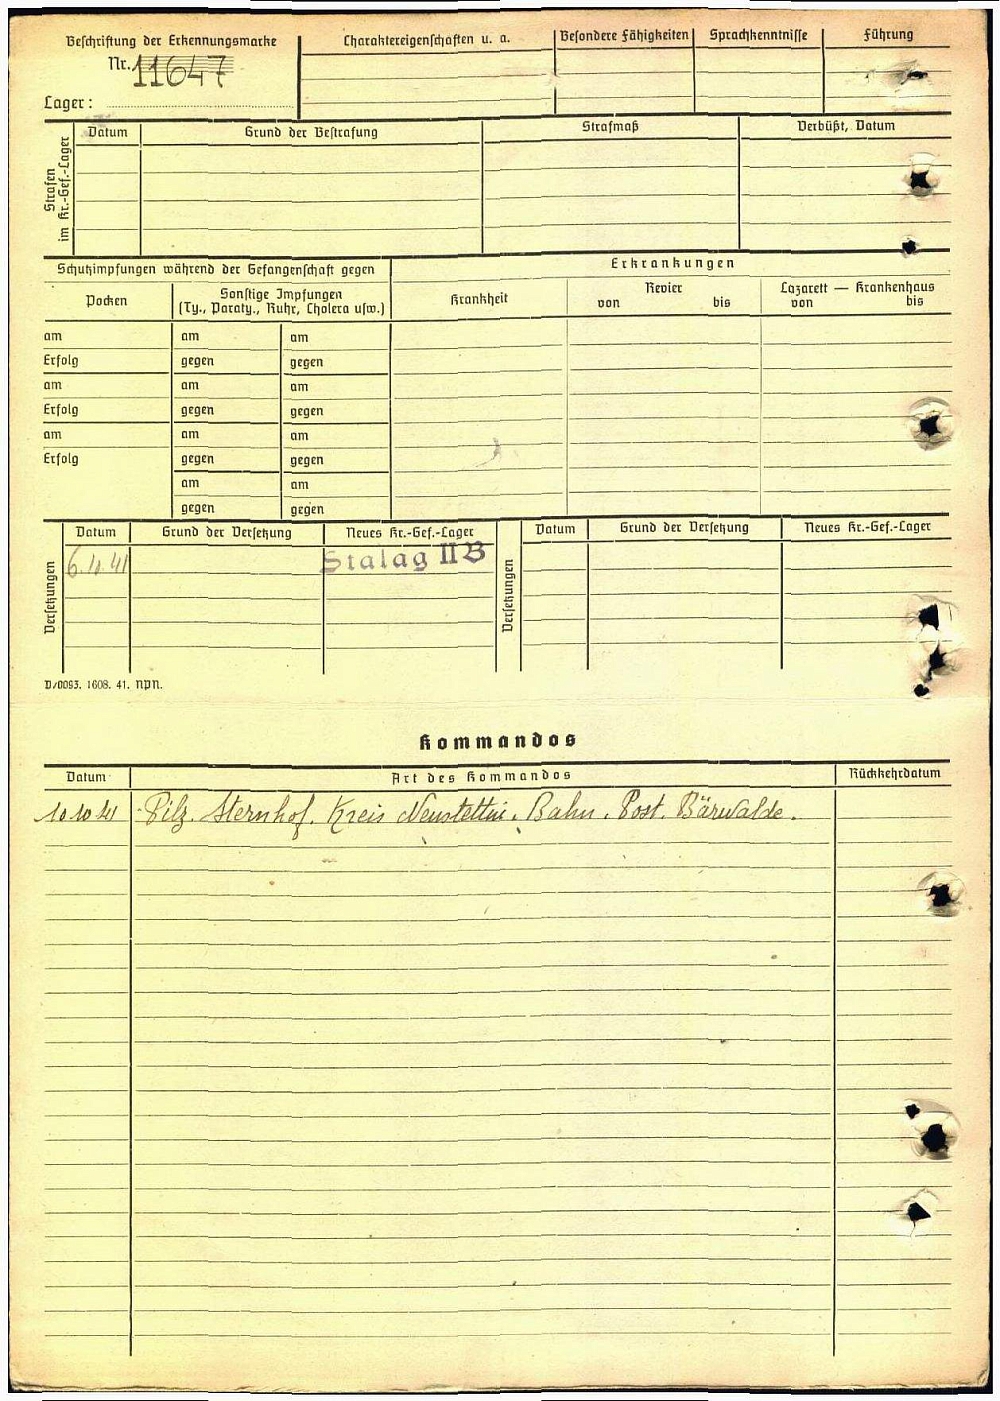 Beschriftung der Erkennungsmarke
Nr. 11647
Lager:
Charaktereigenschaften u. a.
Besondere Fähigkeiten
Sprachkenntnisse
Führung
Strafen im Kr.-Gef.-Lager
Datum
Grund der Bestrafung
Strafmaß
Verbüßt, Datum
Schutzimpfungen während der Gefangenschaft gegen
Erkrankungen
Pocken
Sonstige Impfungen
(Ty., Paraty., Ruhr, Cholera usw.)
Krankheit
Revier
von bis
Lazarett — Krankenhaus
von bis
am am am
Erfolg gegen gegen
am am am
Erfolg gegen gegen
am am am
Erfolg gegen gegen
am am
gegen gegen
Versetzungen
Datum Grund der Versetzung Neues Kr.-Gef.-Lager
6.11.41 Stalag II B
Versetzungen
Datum Grund der Versetzung Neues Kr.-Gef.-Lager
D/0093. 1608. 41. npn.
Kommandos
Datum Art des Kommandos Rückkehrdatum
10 10 41 Pilz. Sternhof. Kreis Neustettin. Bahn. Post. Bärwalde.